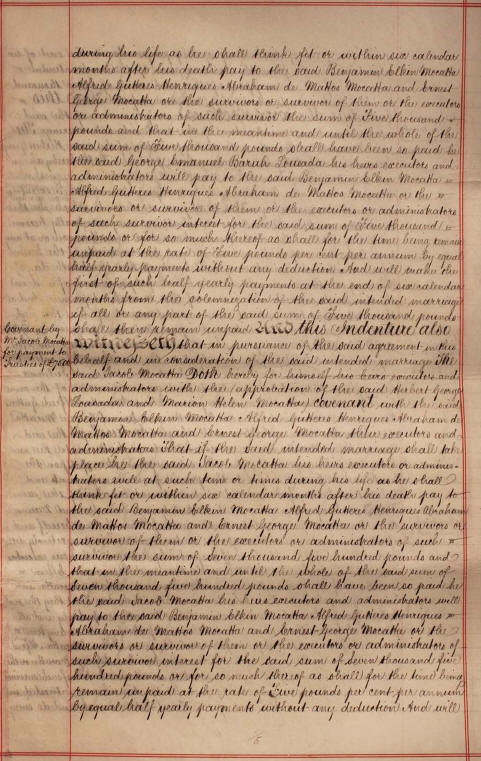 during his life as he shall think fit or within six calendar
months after his death pay to the said Benjamin Elkin Mocatta
Alfred Gutteres Henriques Abraham de Mattos Mocatta and Ernest
George Mocatta or the survivors or survivor of them or the executors
or administrators of such survivor the sum of Five thousand
pounds and that in the meantime and until the whole of the
said sum of Five thousand pounds shall have been so paid he
the said George Emanuel Baruh Lousada his heirs executors and
administrators will pay to the said Benjamin Elkin Mocatta
Alfred Gutteres Henriques Abraham de Mattos Mocatta or the
survivors or survivor of them or the executors or administrators
of such survivor interest for the said sum of Five thousand
pounds or for so much thereof as shall for the time being remain
unpaid at the rate of Five pounds per cent per annum by equal
half yearly payments without any deduction And will make the
first of such half yearly payments at the end of six calendar
months from the solemnization of the said intended marriage
if all or any part of the said sum of Five thousand pounds
shall then remain unpaid And this Indenture also
Covenant by
Mr Jacob Mocatta
for payment to
Trustees of £7500
witnesseth that in pursuance of the said agreement in this
behalf and in consideration of the said intended marriage The
said Jacob Mocatta Doth hereby for himself his heirs executors and
administrators with the approbation of the said Herbert George
Lousada and Marion Helen Mocatta covenant with the said
Benjamin Elkin Mocatta Alfred Gutteres Henriques Abraham de
Mattos Mocatta and Ernest George Mocatta their executors and
administrators That if the said intended marriage shall take
place he the said Jacob Mocatta his heirs executors or adminis-
trators will at such time or times during his life as he shall
think fit or within six calendar months after his death pay to
the said Benjamin Elkin Mocatta Alfred Gutteres Henriques Abraham
de Mattos Mocatta and Ernest George Mocatta or the survivors or
survivor of them or the executors or administrators of such
survivor the sum of Seven thousand five hundred pounds and
that in the meantime and until the whole of the said sum of
Seven thousand five hundred pounds shall have been so paid he
the said Jacob Mocatta his heirs executors and administrators will
pay to the said Benjamin Elkin Mocatta Alfred Gutteres Henriques
Abraham de Mattos Mocatta and Ernest George Mocatta or the
survivors or survivor of them or the executors or administrators of
such survivor interest for the said sum of Seven thousand five
hundred pounds or for so much thereof as shall for the time being
remain unpaid at the rate of Five pounds per cent per annum
by equal half yearly payments without any deduction And will